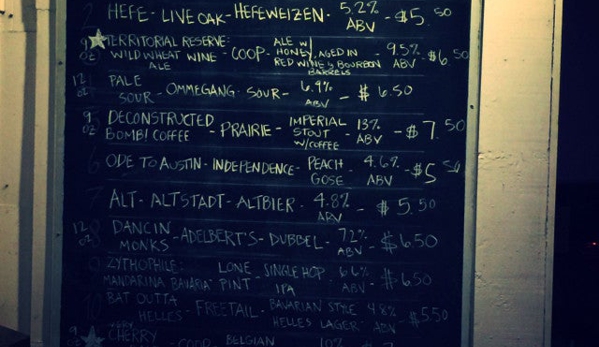 2 HEFE - LIVE OAK - HEFEWEIZEN - 5.2% ABV - $5.50
9 OZ TERRITORIAL RESERVE: WILD WHEAT WINE ALE - COOP - ALE W/ HONEY, AGED IN RED WINE & BOURBON BARRELS - 9.5% ABV - $6.50
12 OZ PALE SOUR - OMMEGANG - SOUR - 6.9% ABV - $6.50
9 OZ DECONSTRUCTED BOMB! COFFEE - PRAIRIE - IMPERIAL STOUT W/COFFEE - 13% ABV - $7.50
6 ODE TO AUSTIN - INDEPENDENCE - PEACH GOSE - 4.6% ABV - $5.50
7 ALT - ALTSTADT - ALTBIER - 4.8% ABV - $5.50
12 OZ DANCIN MONKS - ADELBERT'S - DUBBEL - 7.2% ABV - $6.50
ZYTHOPHILE: MANDARINA BAVARIA - LONE PINT - SINGLE HOP IPA - 6.6% ABV - $6.50
BAT OUTTA HELLES - FREETAIL - BAVARIAN STYLE HELLES LAGER - 4.8% ABV - $5.50
CHERRY - COOP - BELGIAN 10%